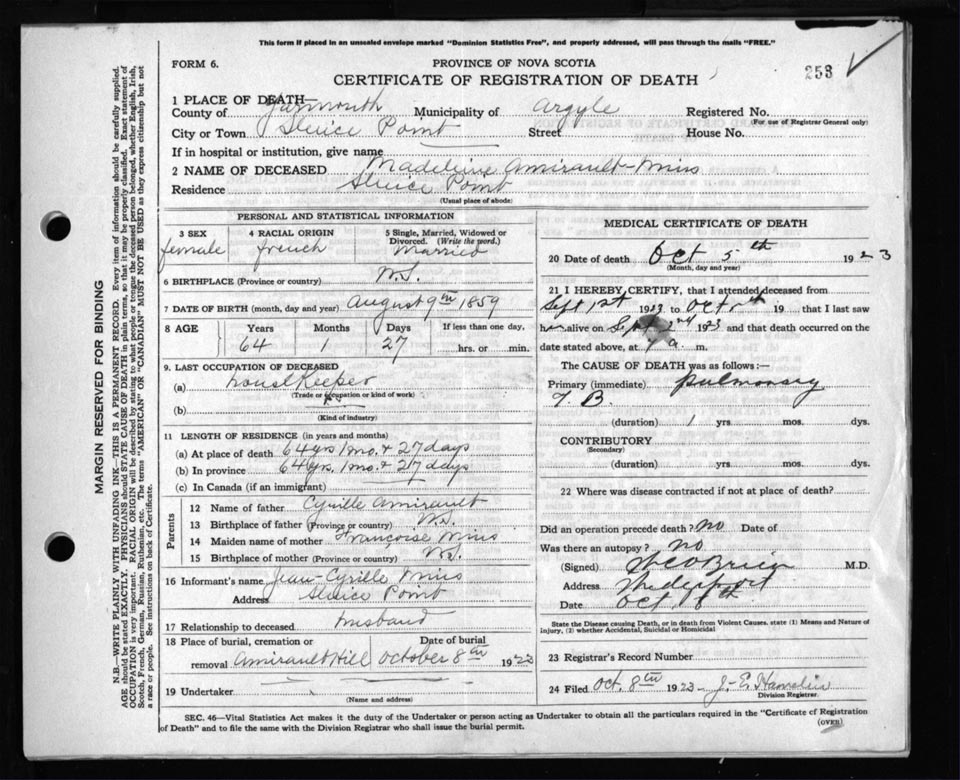 This form if placed in an unsealed envelope marked "Dominion Statistics Free", and properly addressed, will pass through the mails "FREE."
FORM 6.
PROVINCE OF NOVA SCOTIA
CERTIFICATE OF REGISTRATION OF DEATH
253
1 PLACE OF DEATH—
County of Yarmouth Municipality of Argyle Registered No.
(For use of Registrar General only)
City or Town Sluice Point Street House No.
If in hospital or institution, give name
2 NAME OF DECEASED Madeleine Amirault-Mius
Residence Sluice Point
(Usual place of abode)
PERSONAL AND STATISTICAL INFORMATION
3 SEX female
4 RACIAL ORIGIN french
5 Single, Married, Widowed or Divorced. (Write the word.) Married
6 BIRTHPLACE (Province or country) N.S.
7 DATE OF BIRTH (month, day and year) August 9th 1859
8 AGE Years Months Days If less than one day,
64 1 27 hrs. or min.
9. LAST OCCUPATION OF DECEASED
(a) Housekeeper
(Trade or occupation or kind of work)
(b)
(Kind of industry)
11 LENGTH OF RESIDENCE (in years and months)
(a) At place of death 64 yrs 1 mo. & 27 days
(b) In province 64 yrs, 1 mo. & 27 days
(c) In Canada (if an immigrant)
Parents
12 Name of father Cyrille Amirault
13 Birthplace of father (Province or country) N.S.
14 Maiden name of mother Françoise Mius
15 Birthplace of mother (Province or country) N.S.
16 Informant's name Jean-Cyrille Mius
Address Sluice Point
17 Relationship to deceased husband
18 Place of burial, cremation or Date of burial
removal Amirault Hill October 8th 1923
19 Undertaker
(Name and address)
MEDICAL CERTIFICATE OF DEATH
20 Date of death Oct 5th 1923
(Month, day and year)
21 I HEREBY CERTIFY, that I attended deceased from
Sept 1st 1923 to Oct 19 that I last saw
h alive on Sept 2nd 1923 and that death occurred on the
date stated above, at 7 a. m.
The CAUSE OF DEATH was as follows:—
Primary (immediate) Pulmonary
T. B.
(duration) 1 yrs. mos. dys.
CONTRIBUTORY
(Secondary)
(duration) yrs. mos. dys.
22 Where was disease contracted if not at place of death?
Did an operation precede death? no Date of
Was there an autopsy? no
(Signed) O'Brien M.D.
Address
Date Oct 8th
State the Disease causing Death, or in death from Violent Causes, state (1) Means and Nature of
injury, (2) whether Accidental, Suicidal or Homicidal
23 Registrar's Record Number
24 Filed Oct. 8th 1923 J. E. Hamelin
Division Registrar.
SEC. 46—Vital Statistics Act makes it the duty of the Undertaker or person acting as Undertaker to obtain all the particulars required in the "Certificate of Registration
of Death" and to file the same with the Division Registrar who shall issue the burial permit.
(OVER)
MARGIN RESERVED FOR BINDING
N.B.—WRITE PLAINLY WITH UNFADING INK—THIS IS A PERMANENT RECORD. Every item of information should be carefully supplied.
AGE should be stated EXACTLY. PHYSICIANS should STATE CAUSE OF DEATH in plain terms, so that it may be properly classified. Exact statement of
OCCUPATION is very important. RACIAL ORIGIN will be described by stating to what people or tongue the deceased person belonged, whether English, Irish,
Scotch, French, German, Russian, Ruthenian, etc. The terms "AMERICAN" OR "CANADIAN" MUST NOT BE USED as they express citizenship but not
a race or people. See instructions on back of Certificate.